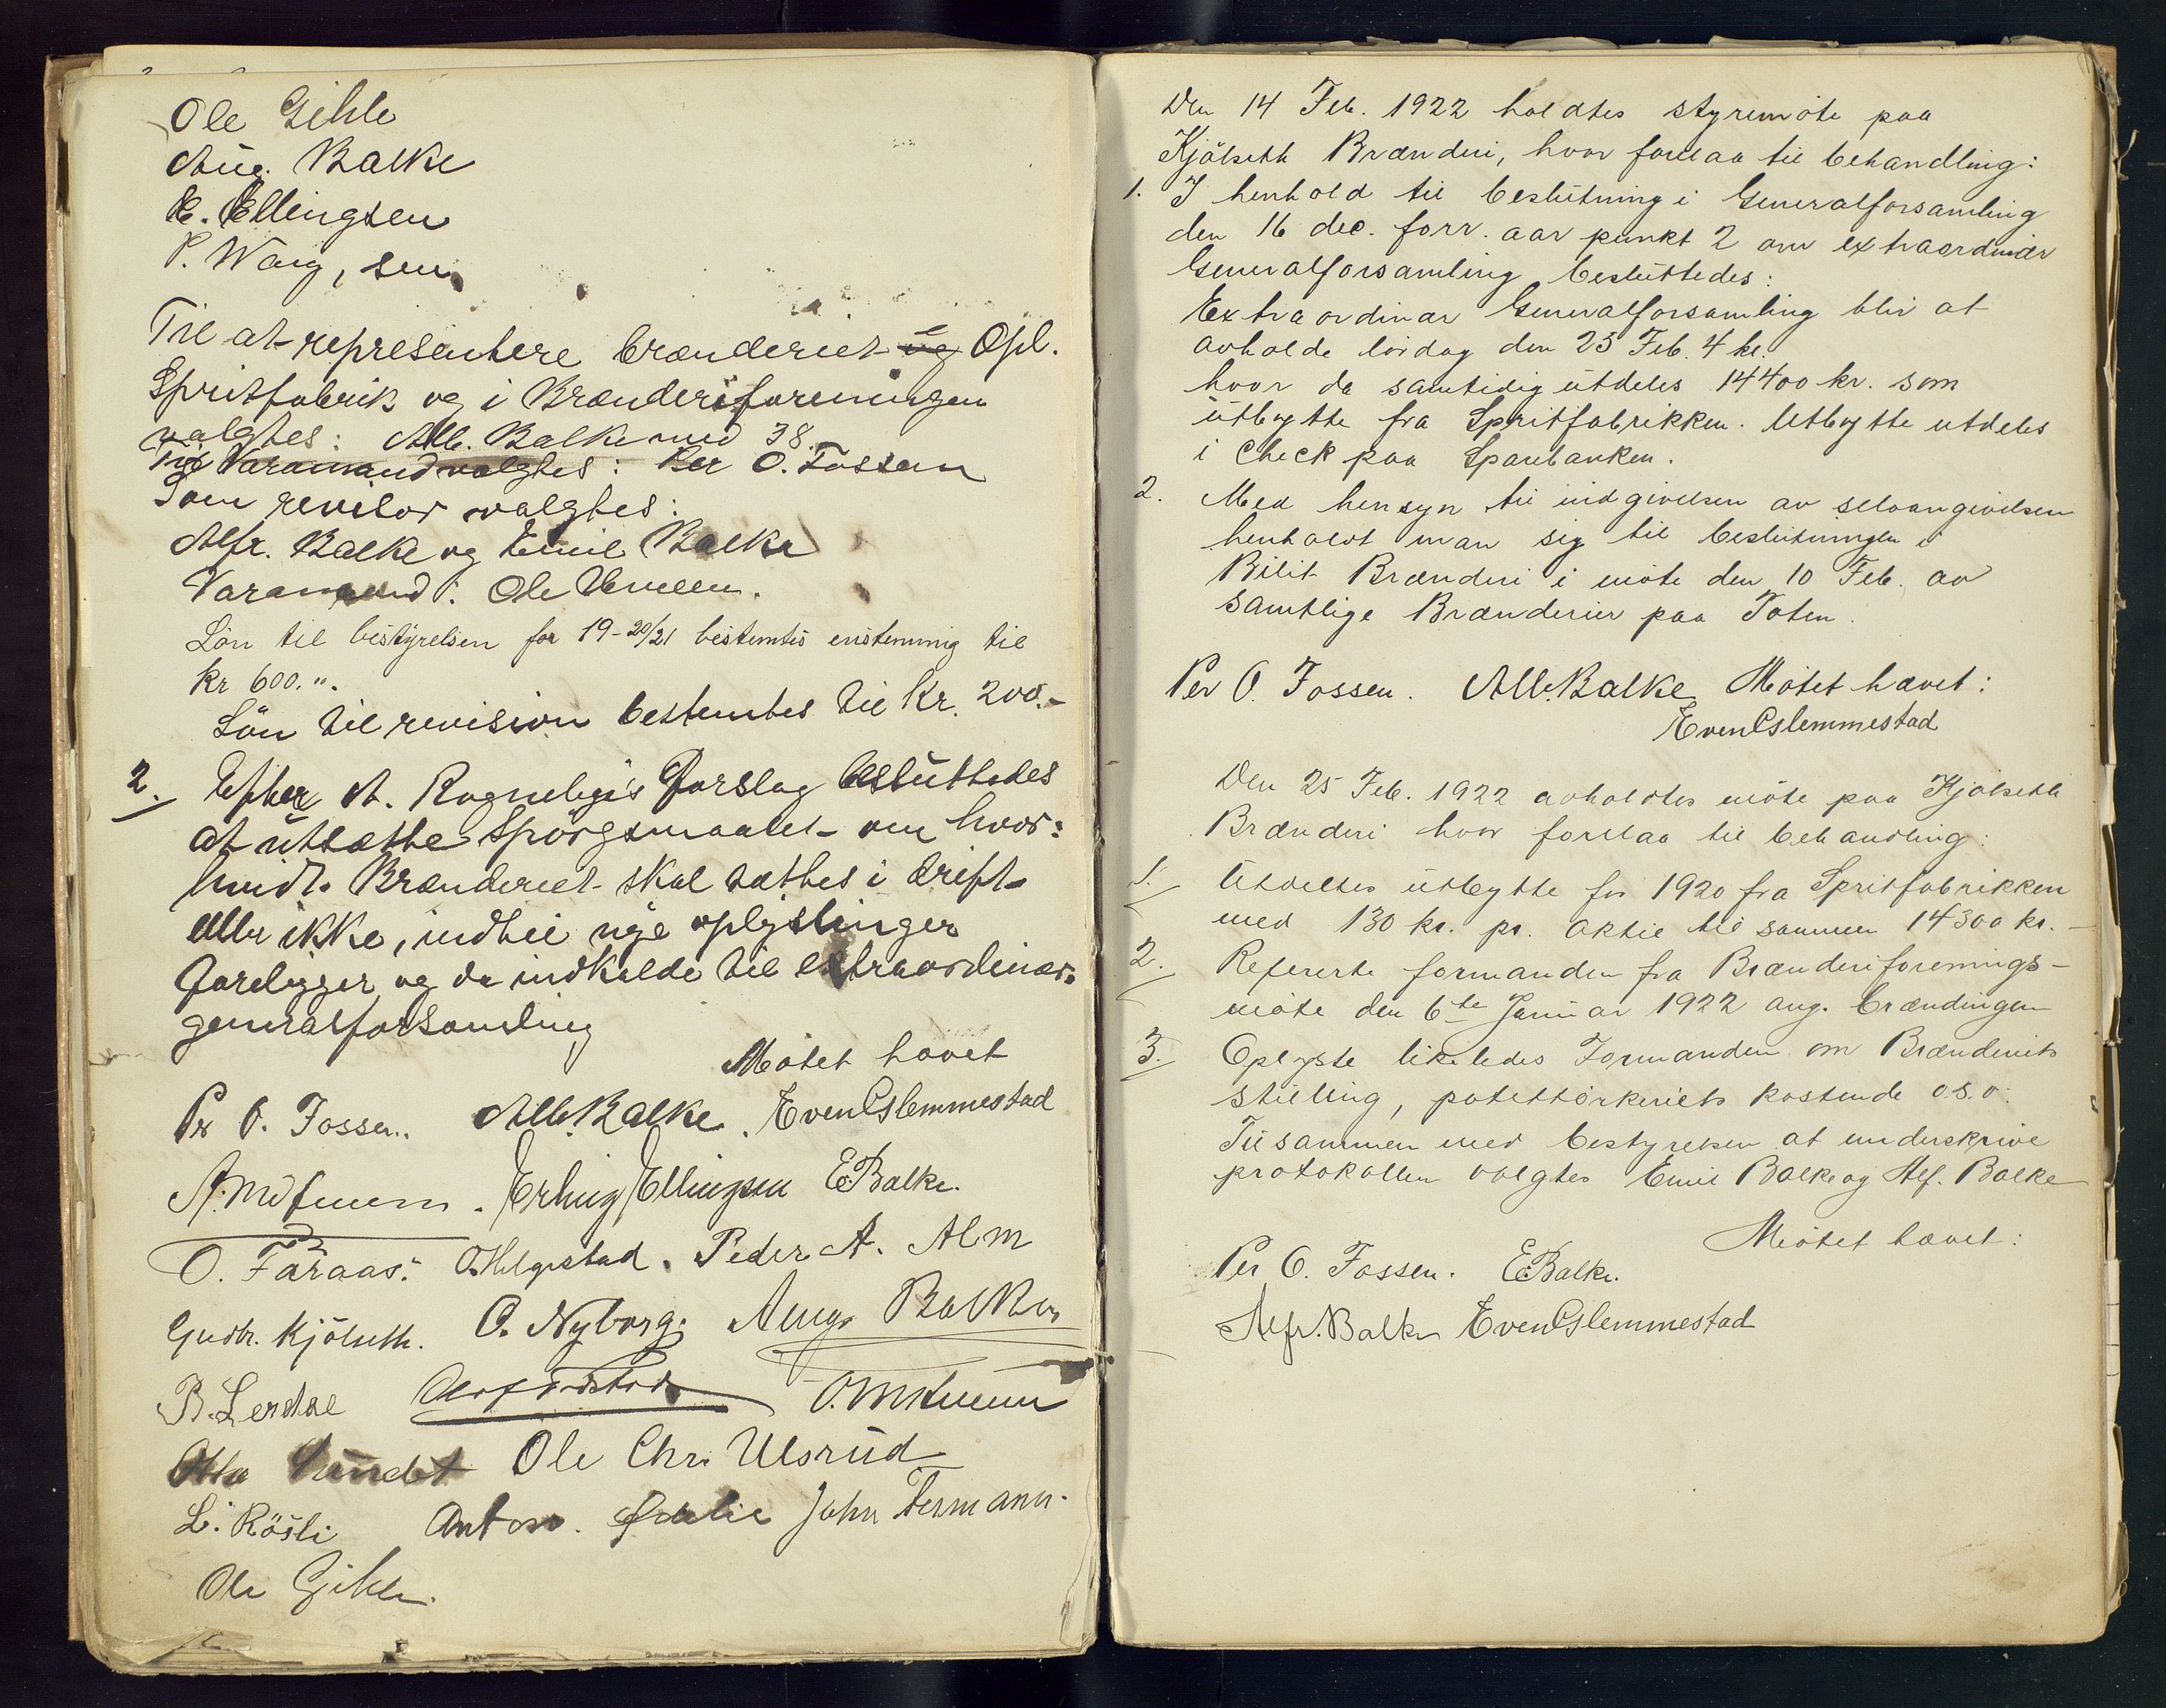 Ole Gihle
Aug. Balke
E. Ellingsen
P. Wang, sen.
Til at representere brænderiet i Opl.
Spritfabrik og i Brænderiforeningen
valgtes: Alb. Balke med 38.
Til Varamand valgtes: Per O. Fossen
Som revisor valgtes:
Alfr. Balke og Emil Balke
Varamand: Ole
Lön til bestyrelsen for 19-20/21 bestemtes enstemmig til
kr 600.".
Lön til revision bestemtes til Kr. 200.-
2. Efter A. Rognebys Forslag besluttedes
at utsætte Spörgsmaalet om hvor:
Brænderiet skal sættes i drift
eller ikke, indtil nye oplysninger
foreligger og da indkalde til extraordinær:
generalforsamling
Mötet hævet
Per O. Fossen. Alb. Balke. Even Gslemmestad
Erling Ellingsen E. Balke.
O. Faraas. O. Helgestad. Peder A. Alm
Gudbr. Kjölseth. O. Nyborg. Aug. Balke
B. Lerdal
Ole Chr. Ulsrud
L. Rösli Anton. John Fermann.
Ole Gihle.
Den 14 Feb. 1922 holdtes styremöte paa
Kjölseth Brænderi, hvor forelaa til behandling:
1. I henhold til beslutning i Generalforsamling
den 16 dec. forr. aar punkt 2 om extraordinær
Generalforsamling besluttedes:
Extraordinær Generalforsamling blir at
avholde lördag den 25 Feb. 4 kl.
hvor da samtidig utdeles 14400 kr. som
utbytte fra Spritfabrikken. Utbytte utdeles
i Check paa Sparebanken.
2. Med hensyn til indgivelsen av selvangivelsen
henholdt man sig til beslutningen i
Bilit Brænderi i möte den 10 Feb. av
samtlige Brænderier paa Toten.
Per O. Fossen. Alb. Balke Mötet hævet:
Even Gslemmestad
Den 25 Feb. 1922 avholdtes möte paa Kjölseth
Brænderi hvor forelaa til behandling:
1. Utdeltes utbytte for 1920 fra Spritfabrikken
med 130 kr. pr. aktie tilsammen 14300 kr.-
2. Refererte formanden fra Brænderiforenings-
möte den 6te Januar 1922 ang. brændingen
3. Oplyste likeledes Formanden om Brænderiets
stilling, potettörkeriets kostende o.s.v.
Tilsammen med bestyrelsen at underskrive
protokollen valgtes Emil Balke og Alf. Balke
Mötet hævet:
Per O. Fossen. E. Balke.
Alfr. Balke Even Gslemmestad